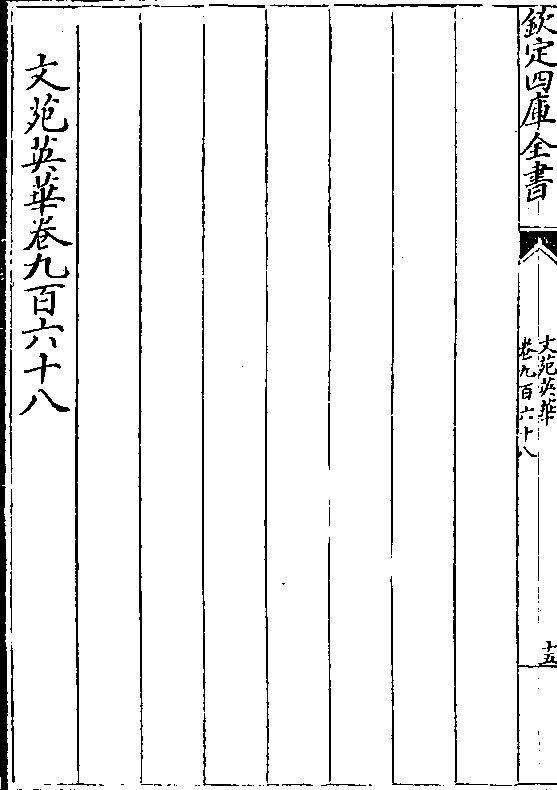 欽定四庫全書
文苑英華
卷九百六十八
十五
文苑英華卷九百六十八